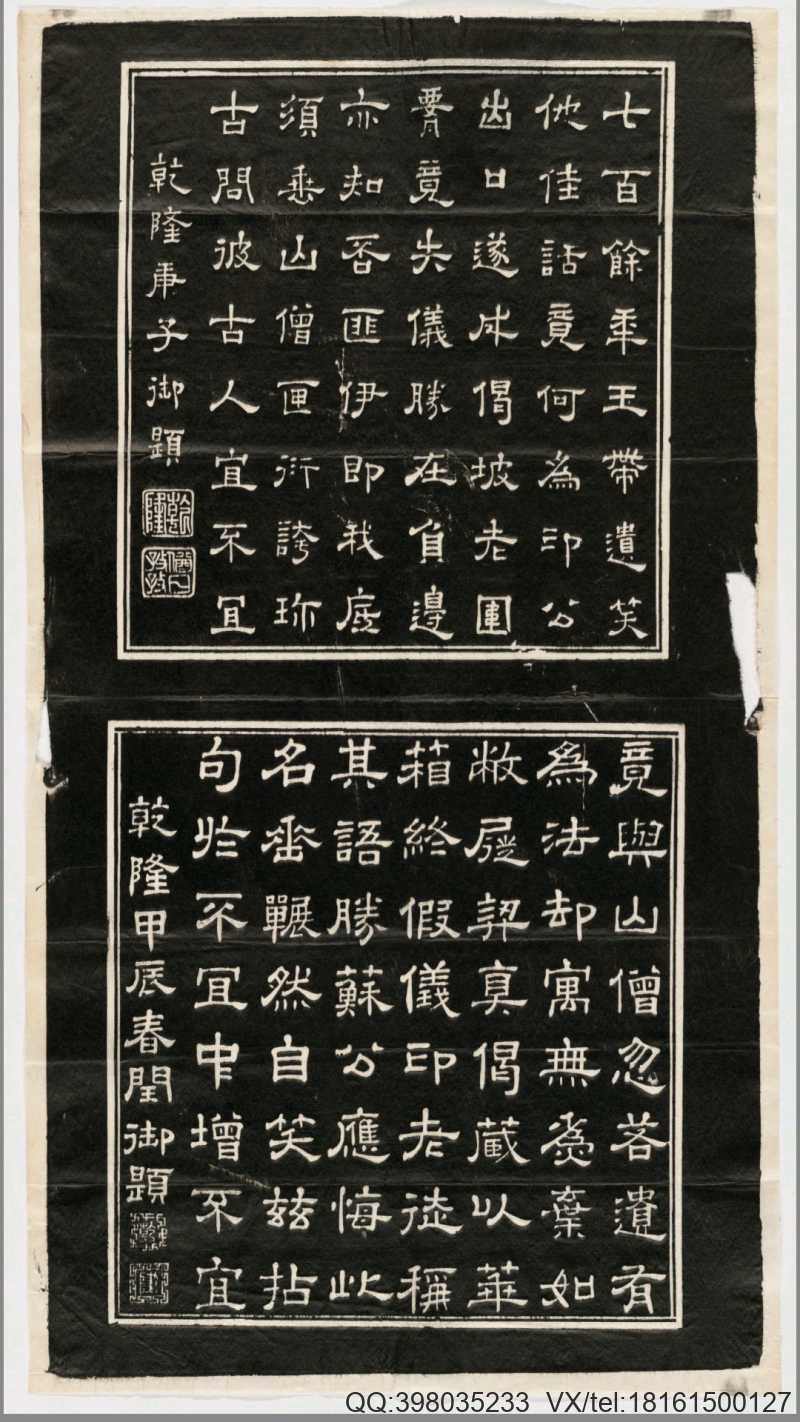 七百餘年玉帶遺笑
他佳話竟何為印公
出口遂成偈坡老圍
腰竟失儀勝在負邊
亦知否匪伊即我底
須垂山僧匣衍誇珍
古問彼古人宜不宜
乾隆庚子御題
乾隆
竟與山僧忽若遺有
為法却寓無為棄如
敝屣契真偈藏以華
箱終假儀印老徒稱
其語勝蘇公應悔此
名垂囅然自笑玆拈
句於不宜中增不宜
乾隆甲辰春閏御題
QQ:398035233 VX/tel:18161500127